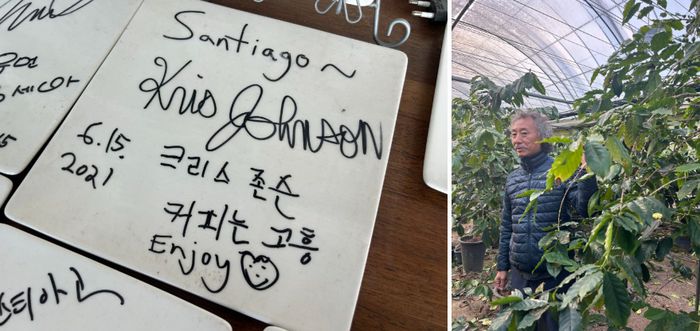 Santiago ~
Kris Johnson
6.15.
2021
크리스 존슨
커피는 고흥
Enjoy